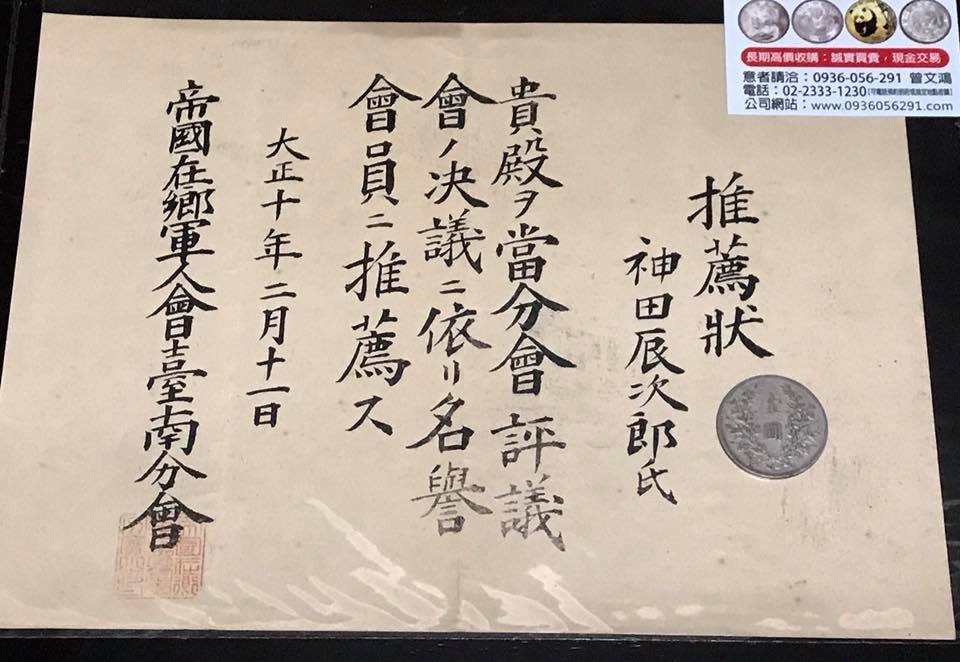 推薦狀
神田辰次郎氏
貴殿ヲ當分會評議
會ノ決議ニ依リ名譽
會員ニ推薦ス
大正十年二月十一日
帝國在鄉軍人會臺南分會
壹圓
長期高價收購：誠實買賣，現金交易
意者請洽：0936-056-291 曾文鴻
電話：02-2333-1230
公司網站：www.0936056291.com